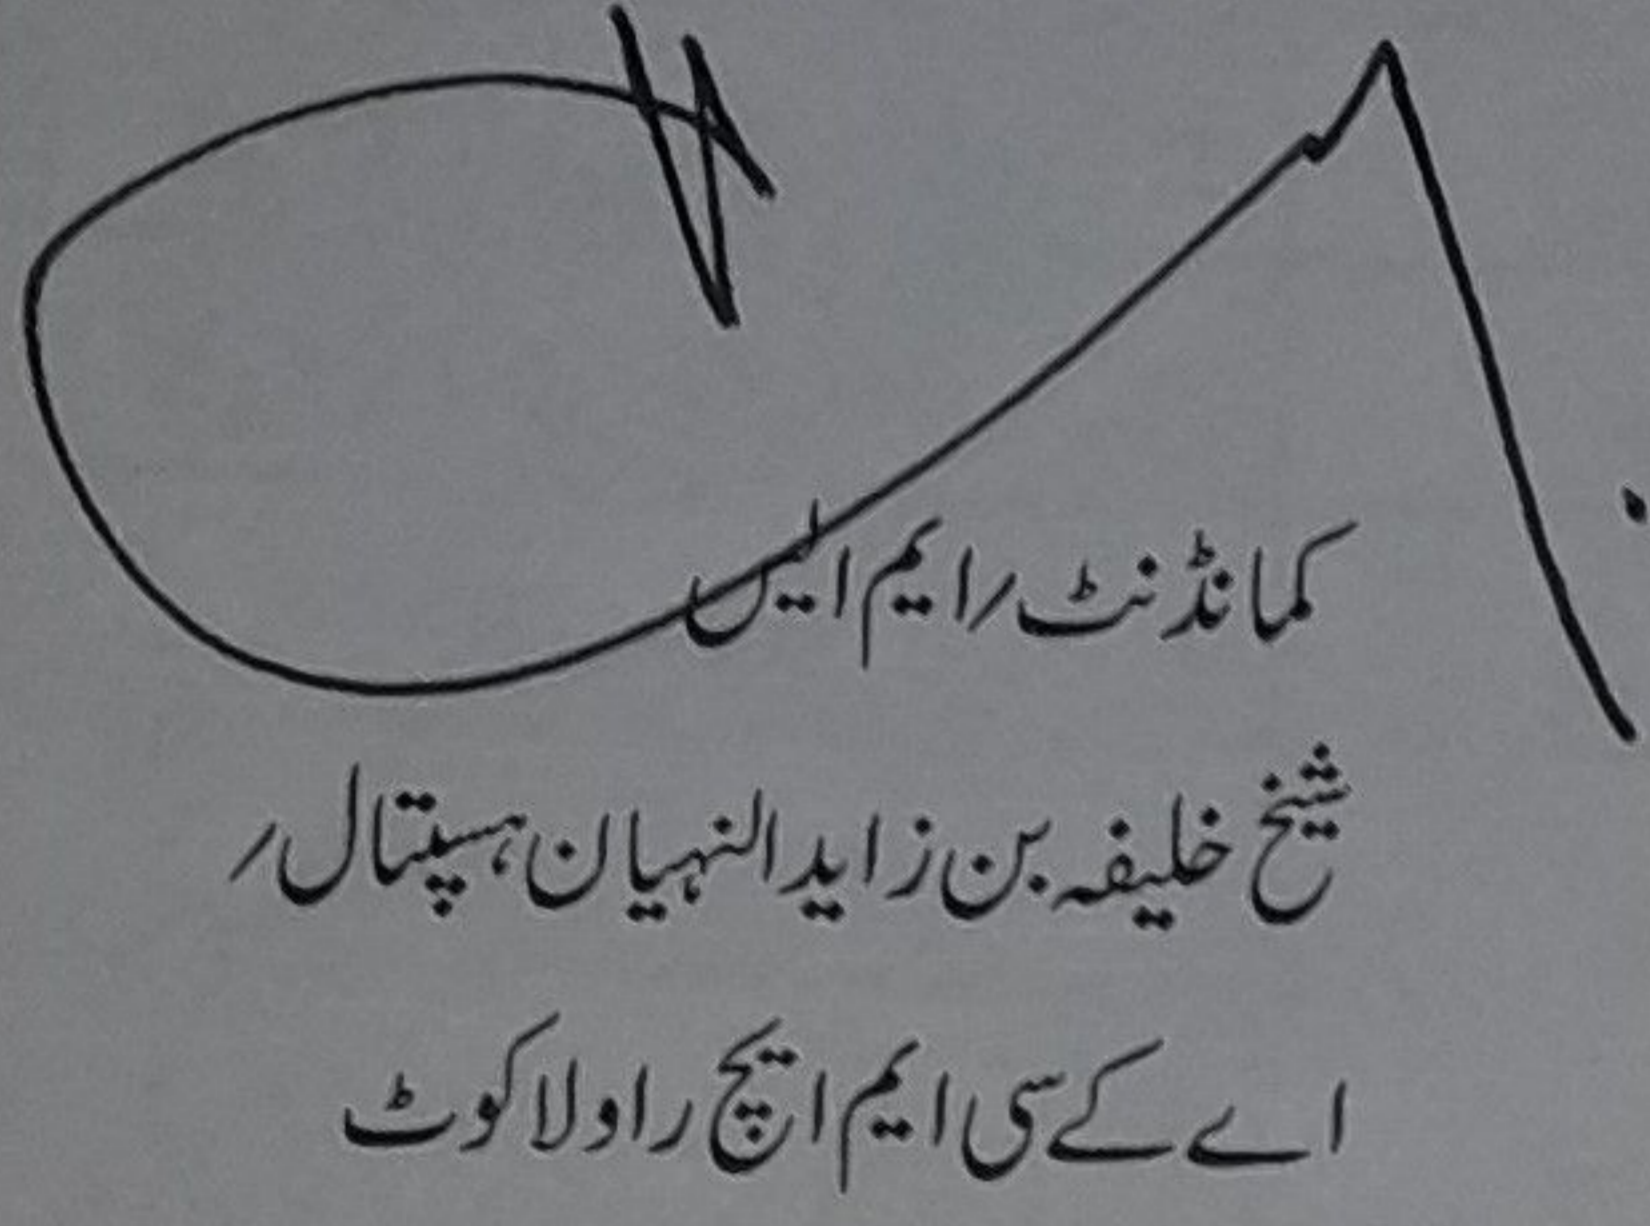 کمانڈنٹ / ایم ایس
شیخ خلیفہ بن زاید النہیان ہسپتال /
اے کے سی ایم ایچ راولاکوٹ